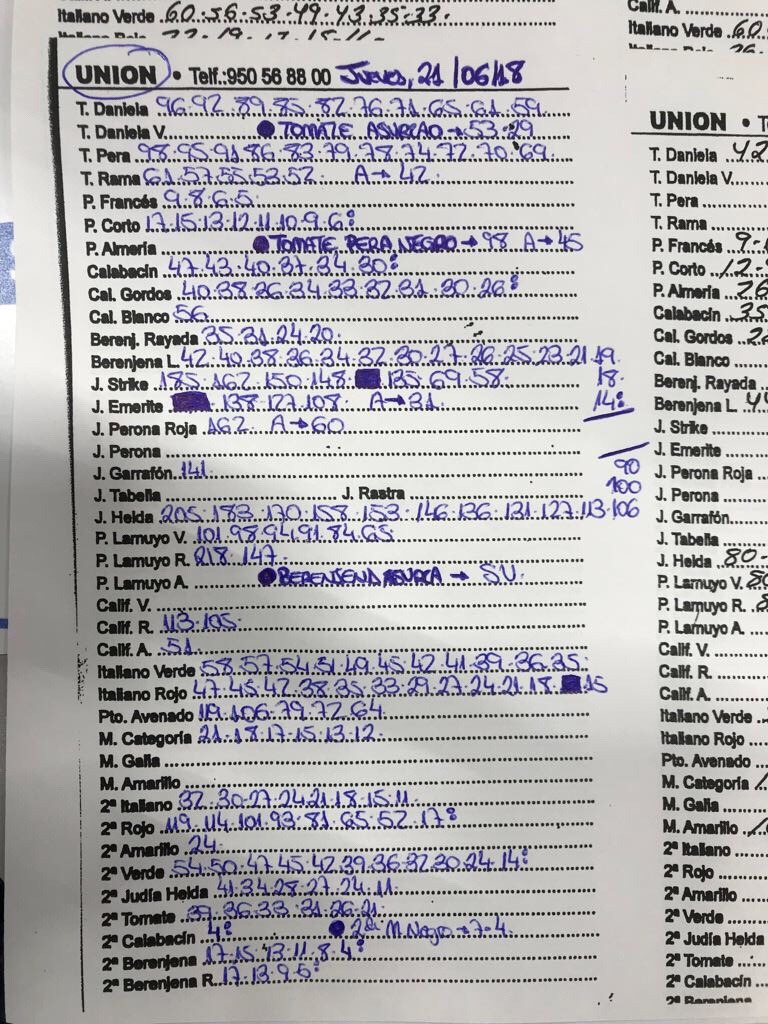 Italiano Verde 60.56-53-49.43.35-33.
UNION • Telf.:950 56 88 00 Jueves, 21/06/18
T. Daniela 96.92.89.85.82.76.71.65.61.59
T. Daniela V. ● TOMATE ASURCAO → 53.29
T. Pera 98.95.91.86.83.79.78.74.72.70.69
T. Rama 61.57.55.53.52. A→42
P. Francés 9.8.6.5
P. Corto 17.15.13.12.11.10.9.6:
P. Almería ● TOMATE PERA NEGRO → 98 A→45
Calabacín 47.43.40.37.34.30:
Cal. Gordos 40.38.36.34.33.32.31.30.26:
Cal. Blanco 56
Berenj. Rayada 35.31.24.20
Berenjena L. 42.40.38.36.34.32.30.27.26.25.23.21.19.
18.
14:
J. Strike 185.162.150.148. 135.69.58.
J. Emerite 138.127.108. A→31
J. Perona Roja 162 A→60
J. Perona
J. Garrafón 141
90
100
J. Tabella J. Rastra
J. Helda 205.183.170.158.153.146.136.131.127.113.106
P. Lamuyo V. 101.98.94.91.84.65
P. Lamuyo R. 218.147
P. Lamuyo A. ● BERENJENA ASURCA → SU.
Calif. V.
Calif. R. 113.105
Calif. A. 51
Italiano Verde 58.57.54.51.49.45.42.41.39.36.35
Italiano Rojo 47.45.42.38.35.33.29.27.24.21.18. 15
Pto. Avenado 119.106.79.72.64
M. Categoría 21.18.17.15.13.12
M. Galia
M. Amarillo
2ª Italiano 32.30.27.24.21.18.15.11
2ª Rojo 119.114.101.93.81.65.52.17:
2ª Amarillo 24
2ª Verde 54.50.47.45.42.39.36.32.30.24.14:
2ª Judía Helda 41.34.28.27.24.11
2ª Tomate 39.36.33.31.26.21
2ª Calabacín 4: ● 2ª M. Negro → 7-4
2ª Berenjena 17.15.13.11.8.4:
2ª Berenjena R. 17.13.9.5:
Calif. A.
Italiano Verde 60
UNION •
T. Daniela 42
T. Daniela V.
T. Pera
T. Rama
P. Francés 9
P. Corto 12
P. Almería 26
Calabacín 35
Cal. Gordos
Cal. Blanco
Berenj. Rayada
Berenjena L.
J. Strike
J. Emerite
J. Perona Roja
J. Perona
J. Garrafón
J. Tabella
J. Helda 80
P. Lamuyo V.
P. Lamuyo R.
P. Lamuyo A.
Calif. V.
Calif. R.
Calif. A.
Italiano Verde
Italiano Rojo
Pto. Avenado
M. Categoría
M. Galia
M. Amarillo
2ª Italiano
2ª Rojo
2ª Amarillo
2ª Verde
2ª Judía Helda
2ª Tomate
2ª Calabacín
2ª Berenjena